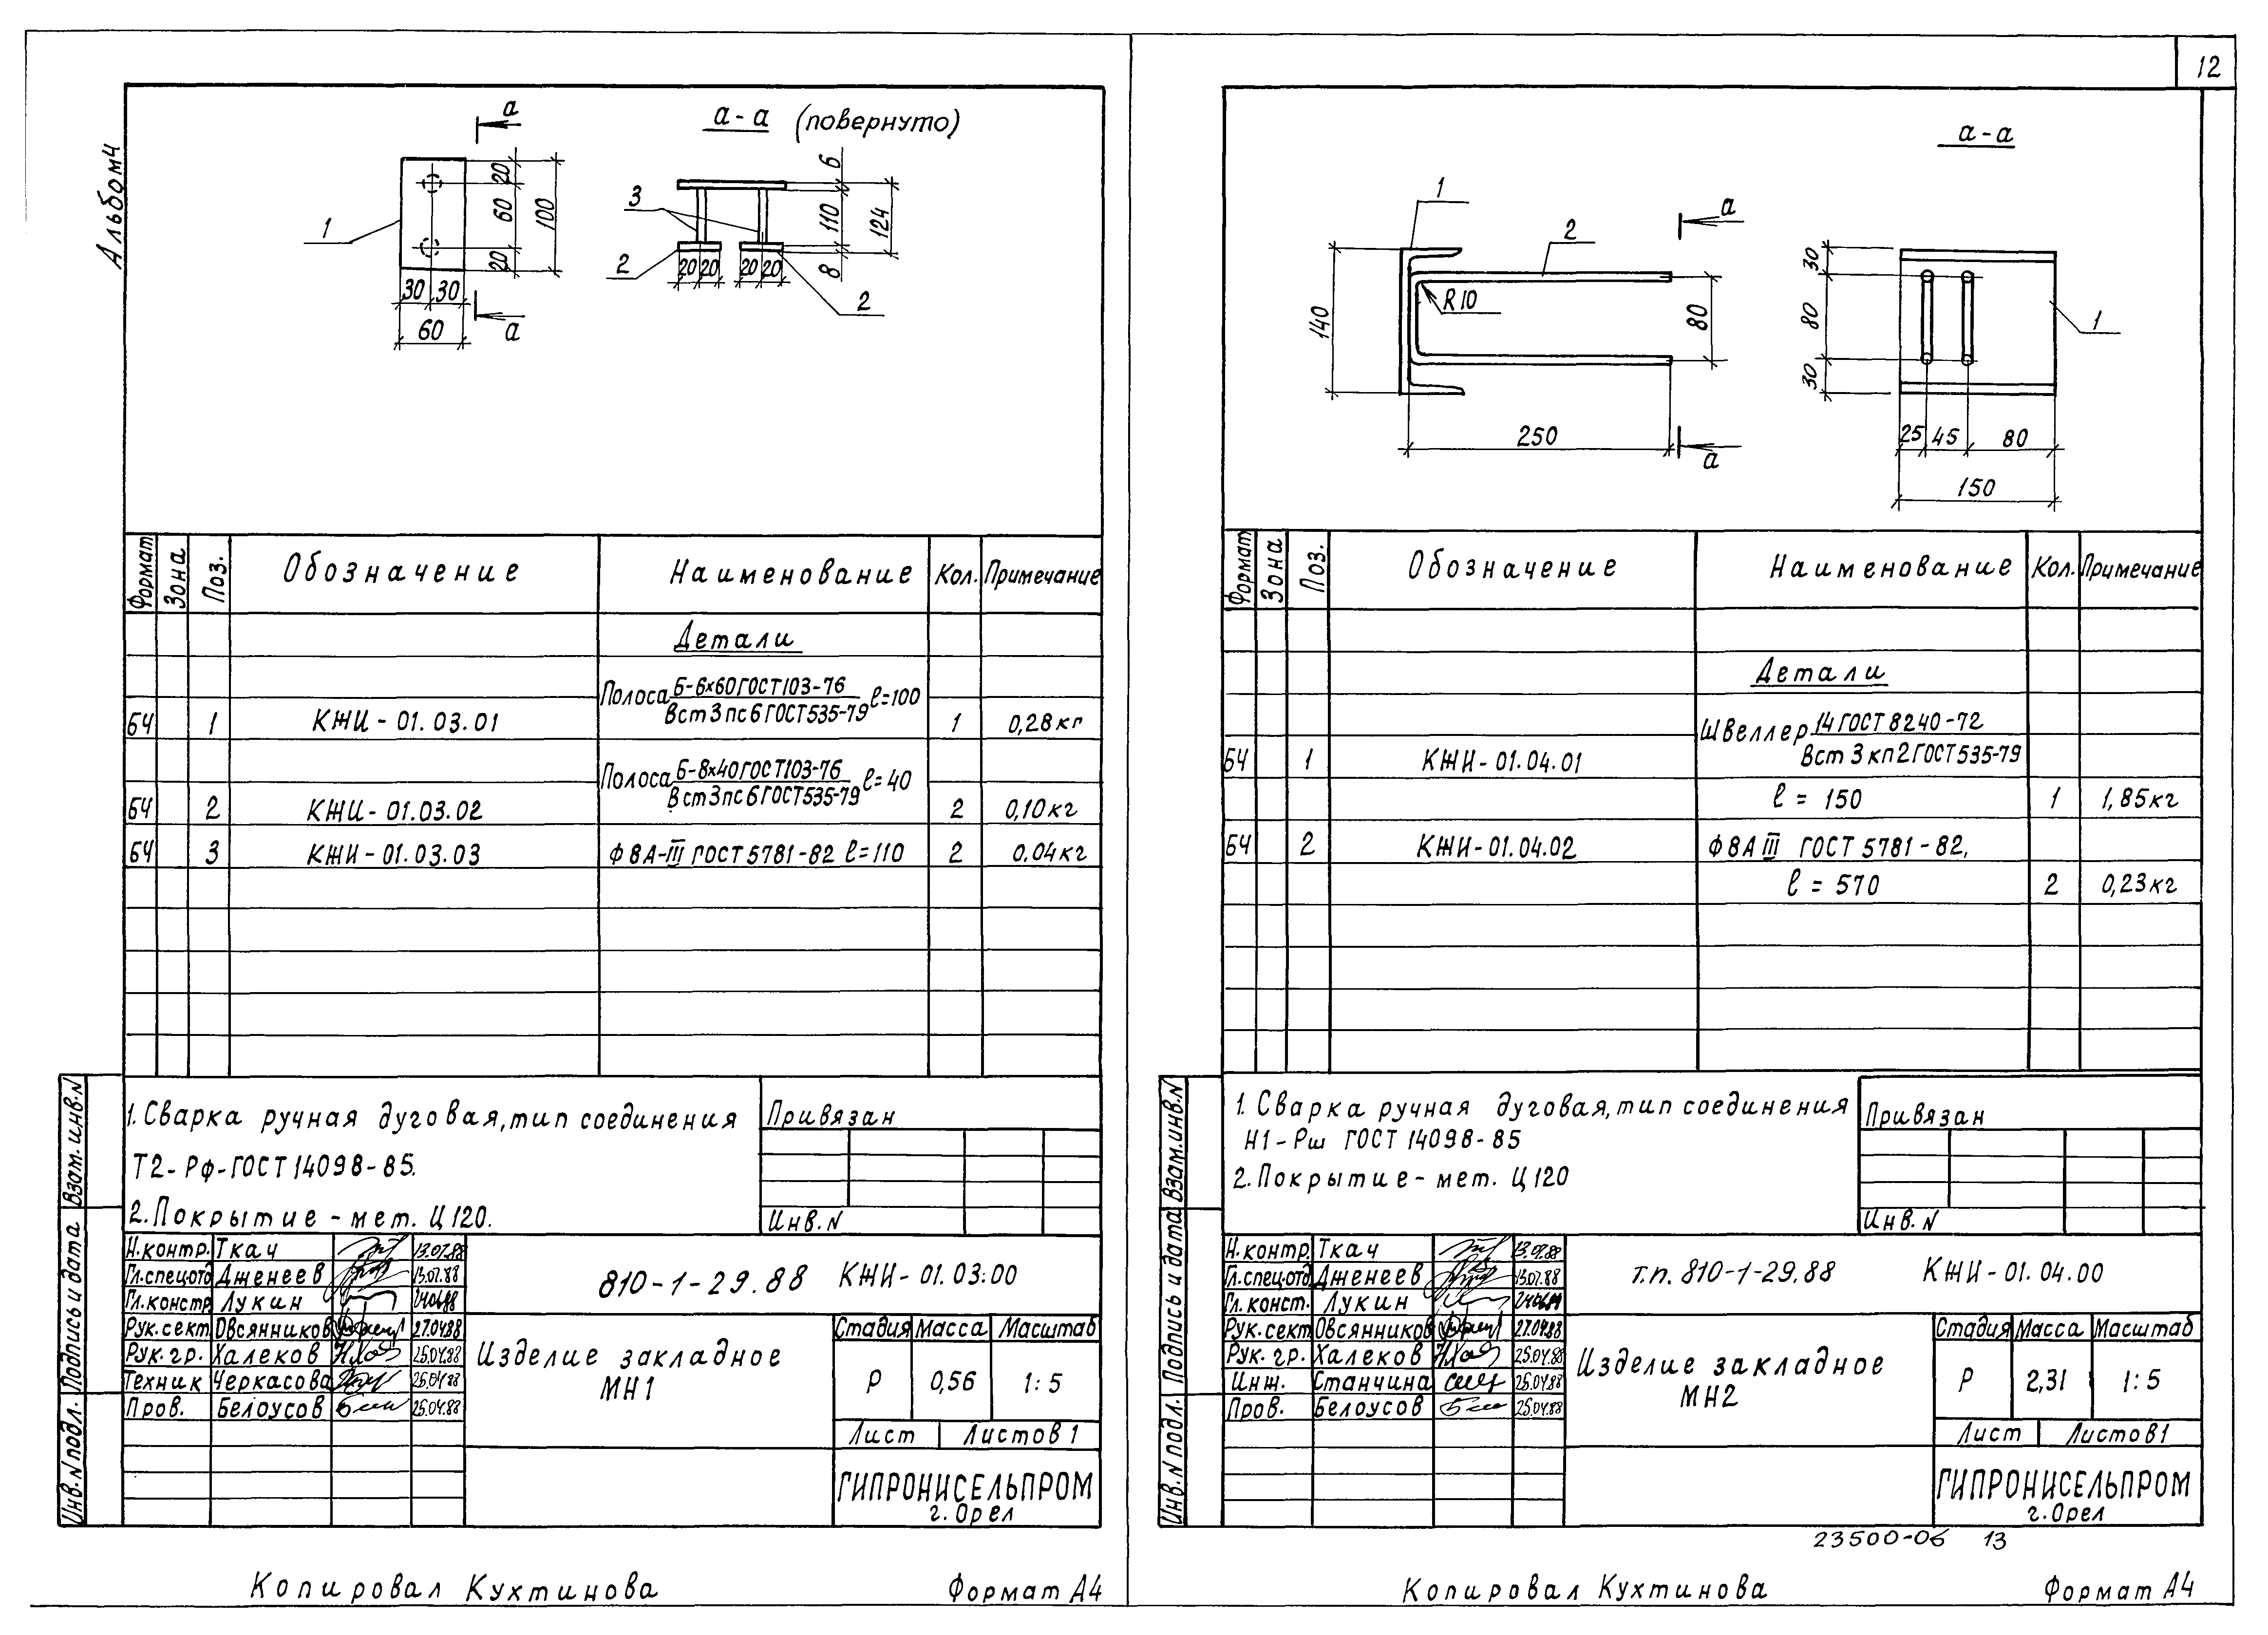 12
Альбом 4
а
а-а (повернуто)
20
60
20
100
1
30 30
60
а
3
2
20 20
20 20
2
6
110
8
124
Формат Зона Поз. Обозначение Наименование Кол. Примечание
Детали
Полоса Б-6х60 ГОСТ 103-76 ℓ=100
Вст 3 пс 6 ГОСТ 535-79
БЧ 1 КЖИ-01.03.01 1 0,28 кг
Полоса Б-8х40 ГОСТ 103-76 ℓ=40
Вст 3 пс 6 ГОСТ 535-79
БЧ 2 КЖИ-01.03.02 2 0,10 кг
БЧ 3 КЖИ-01.03.03 Ф 8А-III ГОСТ 5781-82 ℓ=110 2 0,04 кг
1. Сварка ручная дуговая, тип соединения
Т2-Рф-ГОСТ 14098-85.
2. Покрытие - мет. Ц 120.
Привязан
Инв. N
Взам. инв. N
Подпись и дата
Инв. N подл.
Н. контр. Ткач 13.07.88
Гл. спец. отд Дженеев 13.07.88
Гл. констр. Лукин
Рук. сект. Овсянников 27.04.88
Рук. гр. Халеков 25.04.88
Техник Черкасова 25.04.88
Пров. Белоусов 25.04.88
810-1-29.88 КЖИ-01.03.00
Изделие закладное
МН1
Стадия Масса Масштаб
Р 0,56 1:5
Лист Листов 1
ГИПРОНИСЕЛЬПРОМ
г. Орел
Копировал Кухтинова Формат А4
а-а
1
2
а
R10
140
80
250
а
30
80
30
1
25 45 80
150
Формат Зона Поз. Обозначение Наименование Кол. Примечание
Детали
Швеллер 14 ГОСТ 8240-72
Вст 3 кп 2 ГОСТ 535-79
БЧ 1 КЖИ-01.04.01
ℓ = 150 1 1,85 кг
БЧ 2 КЖИ-01.04.02 Ф 8А III ГОСТ 5781-82,
ℓ = 570 2 0,23 кг
1. Сварка ручная дуговая, тип соединения
Н1-Рш ГОСТ 14098-85
2. Покрытие - мет. Ц 120
Привязан
Инв. N
Взам. инв. N
Подпись и дата
Инв. N подл.
Н. контр. Ткач 13.07.88
Гл. спец. отд Дженеев 13.07.88
Гл. конст. Лукин
Рук. сект. Овсянников 27.04.88
Рук. гр. Халеков 25.04.88
Инж. Станчина 25.04.88
Пров. Белоусов 25.04.88
т.п. 810-1-29.88 КЖИ-01.04.00
Изделие закладное
МН2
Стадия Масса Масштаб
Р 2,31 1:5
Лист Листов 1
ГИПРОНИСЕЛЬПРОМ
г. Орел
23500-06 13
Копировал Кухтинова Формат А4